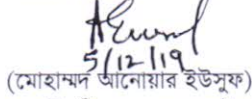 5/12/19
(মোহাম্মদ আনোয়ার ইউসুফ)